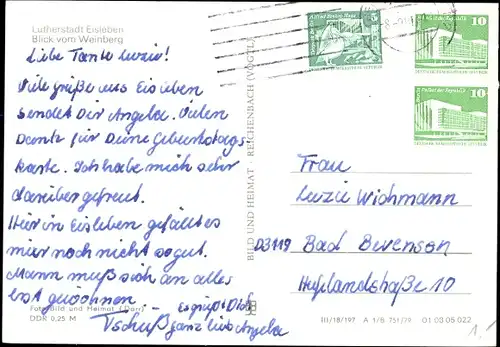 Lutherstadt Eisleben
Blick vom Weinberg
Liebe Tante Luzie!
Viele grüße aus Eisleben
sendet Dir Angela. Vielen
Dank für Deine Geburtstags
karte. Ich habe mich sehr
darüber gefreut.
Hier in Eisleben gefällt es
mir noch nicht so gut.
Mann muß sich an alles
erst gewöhnen.
Es grüßt Dich
Tschüß ganz lieb Angela
Foto: Bild und Heimat (Darr)
DDR 0,25 M
BILD UND HEIMAT · REICHENBACH (VOGTL)
5
10
Palast der Republik
10
Palast der Republik
Frau
Luzie Wichmann
D3119 Bad Bevensen
10
III/18/197 A 1/B 751/79 01 00 05 022